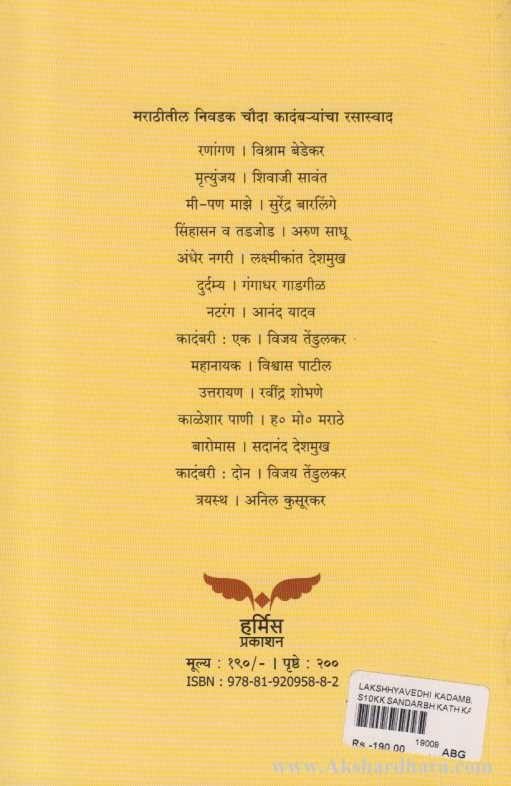 मराठीतील निवडक चौदा कादंबऱ्यांचा रसास्वाद
रणांगण । विश्राम बेडेकर
मृत्युंजय । शिवाजी सावंत
मी-पण माझे । सुरेंद्र बारलिंगे
सिंहासन व तडजोड । अरुण साधू
अंधेर नगरी । लक्ष्मीकांत देशमुख
दुर्दम्य । गंगाधर गाडगीळ
नटरंग । आनंद यादव
कादंबरी : एक । विजय तेंडुलकर
महानायक । विश्वास पाटील
उत्तरायण । रवींद्र शोभणे
काळेशार पाणी । ह० मो० मराठे
बारोमास । सदानंद देशमुख
कादंबरी : दोन । विजय तेंडुलकर
त्रयस्थ । अनिल कुसूरकर
हर्मिस
प्रकाशन
मूल्य : १९०/- । पृष्ठे : २००
ISBN : 978-81-920958-8-2
LAKSHHYAVEDHI KADAMB.
S10KK SANDARBH KATH KA
Rs.-190.00 19009 ABG
www.Akshardhara.com